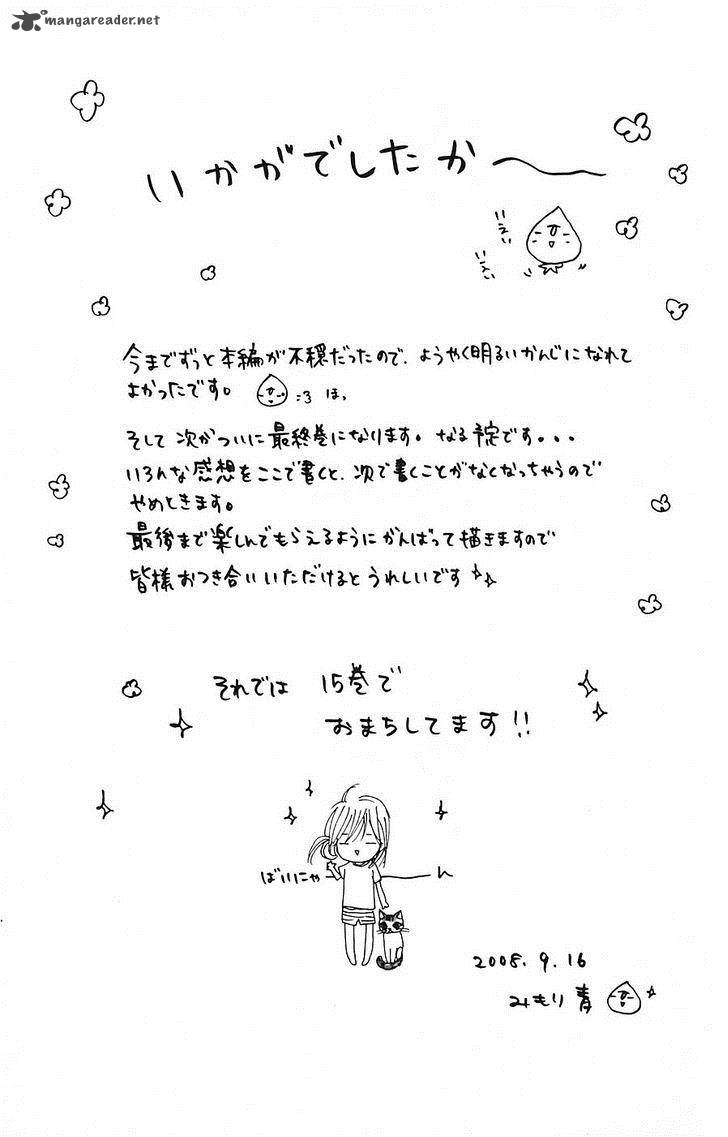 mangareader.net
いかがでしたか〜
いえい
いえい
今までずっと本編が不穏だったので、ようやく明るいかんじになれて
よかったです。 =3 ほっ
そして次がついに最終巻になります。なる予定です・・・
いろんな感想をここで書くと、次で書くことがなくなっちゃうので
やめときます。
最後まで楽しんでもらえるようにがんばって描きますので
皆様おつき合いいただけるとうれしいです
それでは 15巻で
おまちしてます!!
ばいにゃーん
2008.9.16
みもり 青